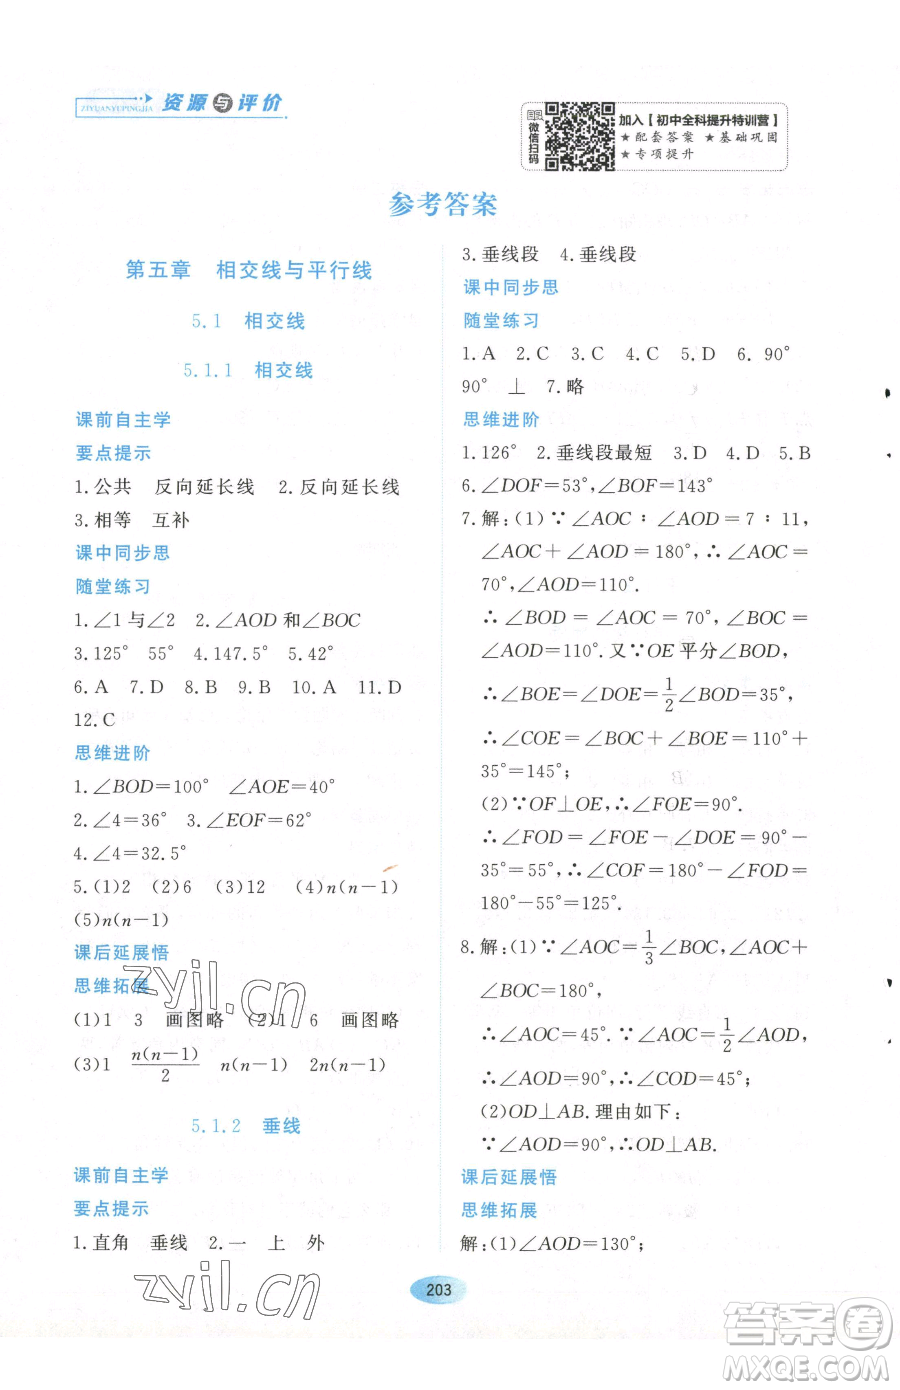 资源与评价
ZIYUANYUPINGJIA
微信扫码
加入【初中全科提升特训营】
★配套答案 ★基础巩固
★专项提升
参考答案
第五章 相交线与平行线
5.1 相交线
5.1.1 相交线
课前自主学
要点提示
1.公共 反向延长线 2.反向延长线
3.相等 互补
课中同步思
随堂练习
1.∠1与∠2 2.∠AOD和∠BOC
3.125° 55° 4.147.5° 5.42°
6.A 7.D 8.B 9.B 10.A 11.D
12.C
思维进阶
1.∠BOD=100° ∠AOE=40°
2.∠4=36° 3.∠EOF=62°
4.∠4=32.5°
5.(1)2 (2)6 (3)12 (4)n(n-1)
(5)n(n-1)
课后延展悟
思维拓展
(1)1 3 画图略 (2)1 6 画图略
(3)1 n(n-1)/2 n(n-1) 2n(n-1)
5.1.2 垂线
课前自主学
要点提示
1.直角 垂线 2.一 上 外
3.垂线段 4.垂线段
课中同步思
随堂练习
1.A 2.C 3.C 4.C 5.D 6.90°
90° ⊥ 7.略
思维进阶
1.126° 2.垂线段最短 3.D 4.D 5.B
6.∠DOF=53°,∠BOF=143°
7.解:(1)∵∠AOC∶∠AOD=7∶11,
∠AOC+∠AOD=180°,∴∠AOC=
70°,∠AOD=110°.
∴∠BOD=∠AOC=70°,∠BOC=
∠AOD=110°.又∵OE平分∠BOD,
∴∠BOE=∠DOE=1/2∠BOD=35°,
∴∠COE=∠BOC+∠BOE=110°+
35°=145°;
(2)∵OF⊥OE,∴∠FOE=90°.
∴∠FOD=∠FOE-∠DOE=90°-
35°=55°,∴∠COF=180°-∠FOD=
180°-55°=125°.
8.解:(1)∵∠AOC=1/3∠BOC,∠AOC+
∠BOC=180°,
∴∠AOC=45°.∵∠AOC=1/2∠AOD,
∴∠AOD=90°,∴∠COD=45°;
(2)OD⊥AB.理由如下:
∵∠AOD=90°,∴OD⊥AB.
课后延展悟
思维拓展
解:(1)∠AOD=130°;
203
zyjl.cn
zyjl.cn
答案卷
MXQE.COM